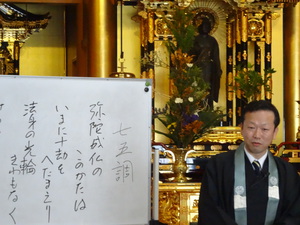 七五調
弥陀成仏の
このかたは
いまに十劫を
へたまえり
法身の光輪
きわもなく